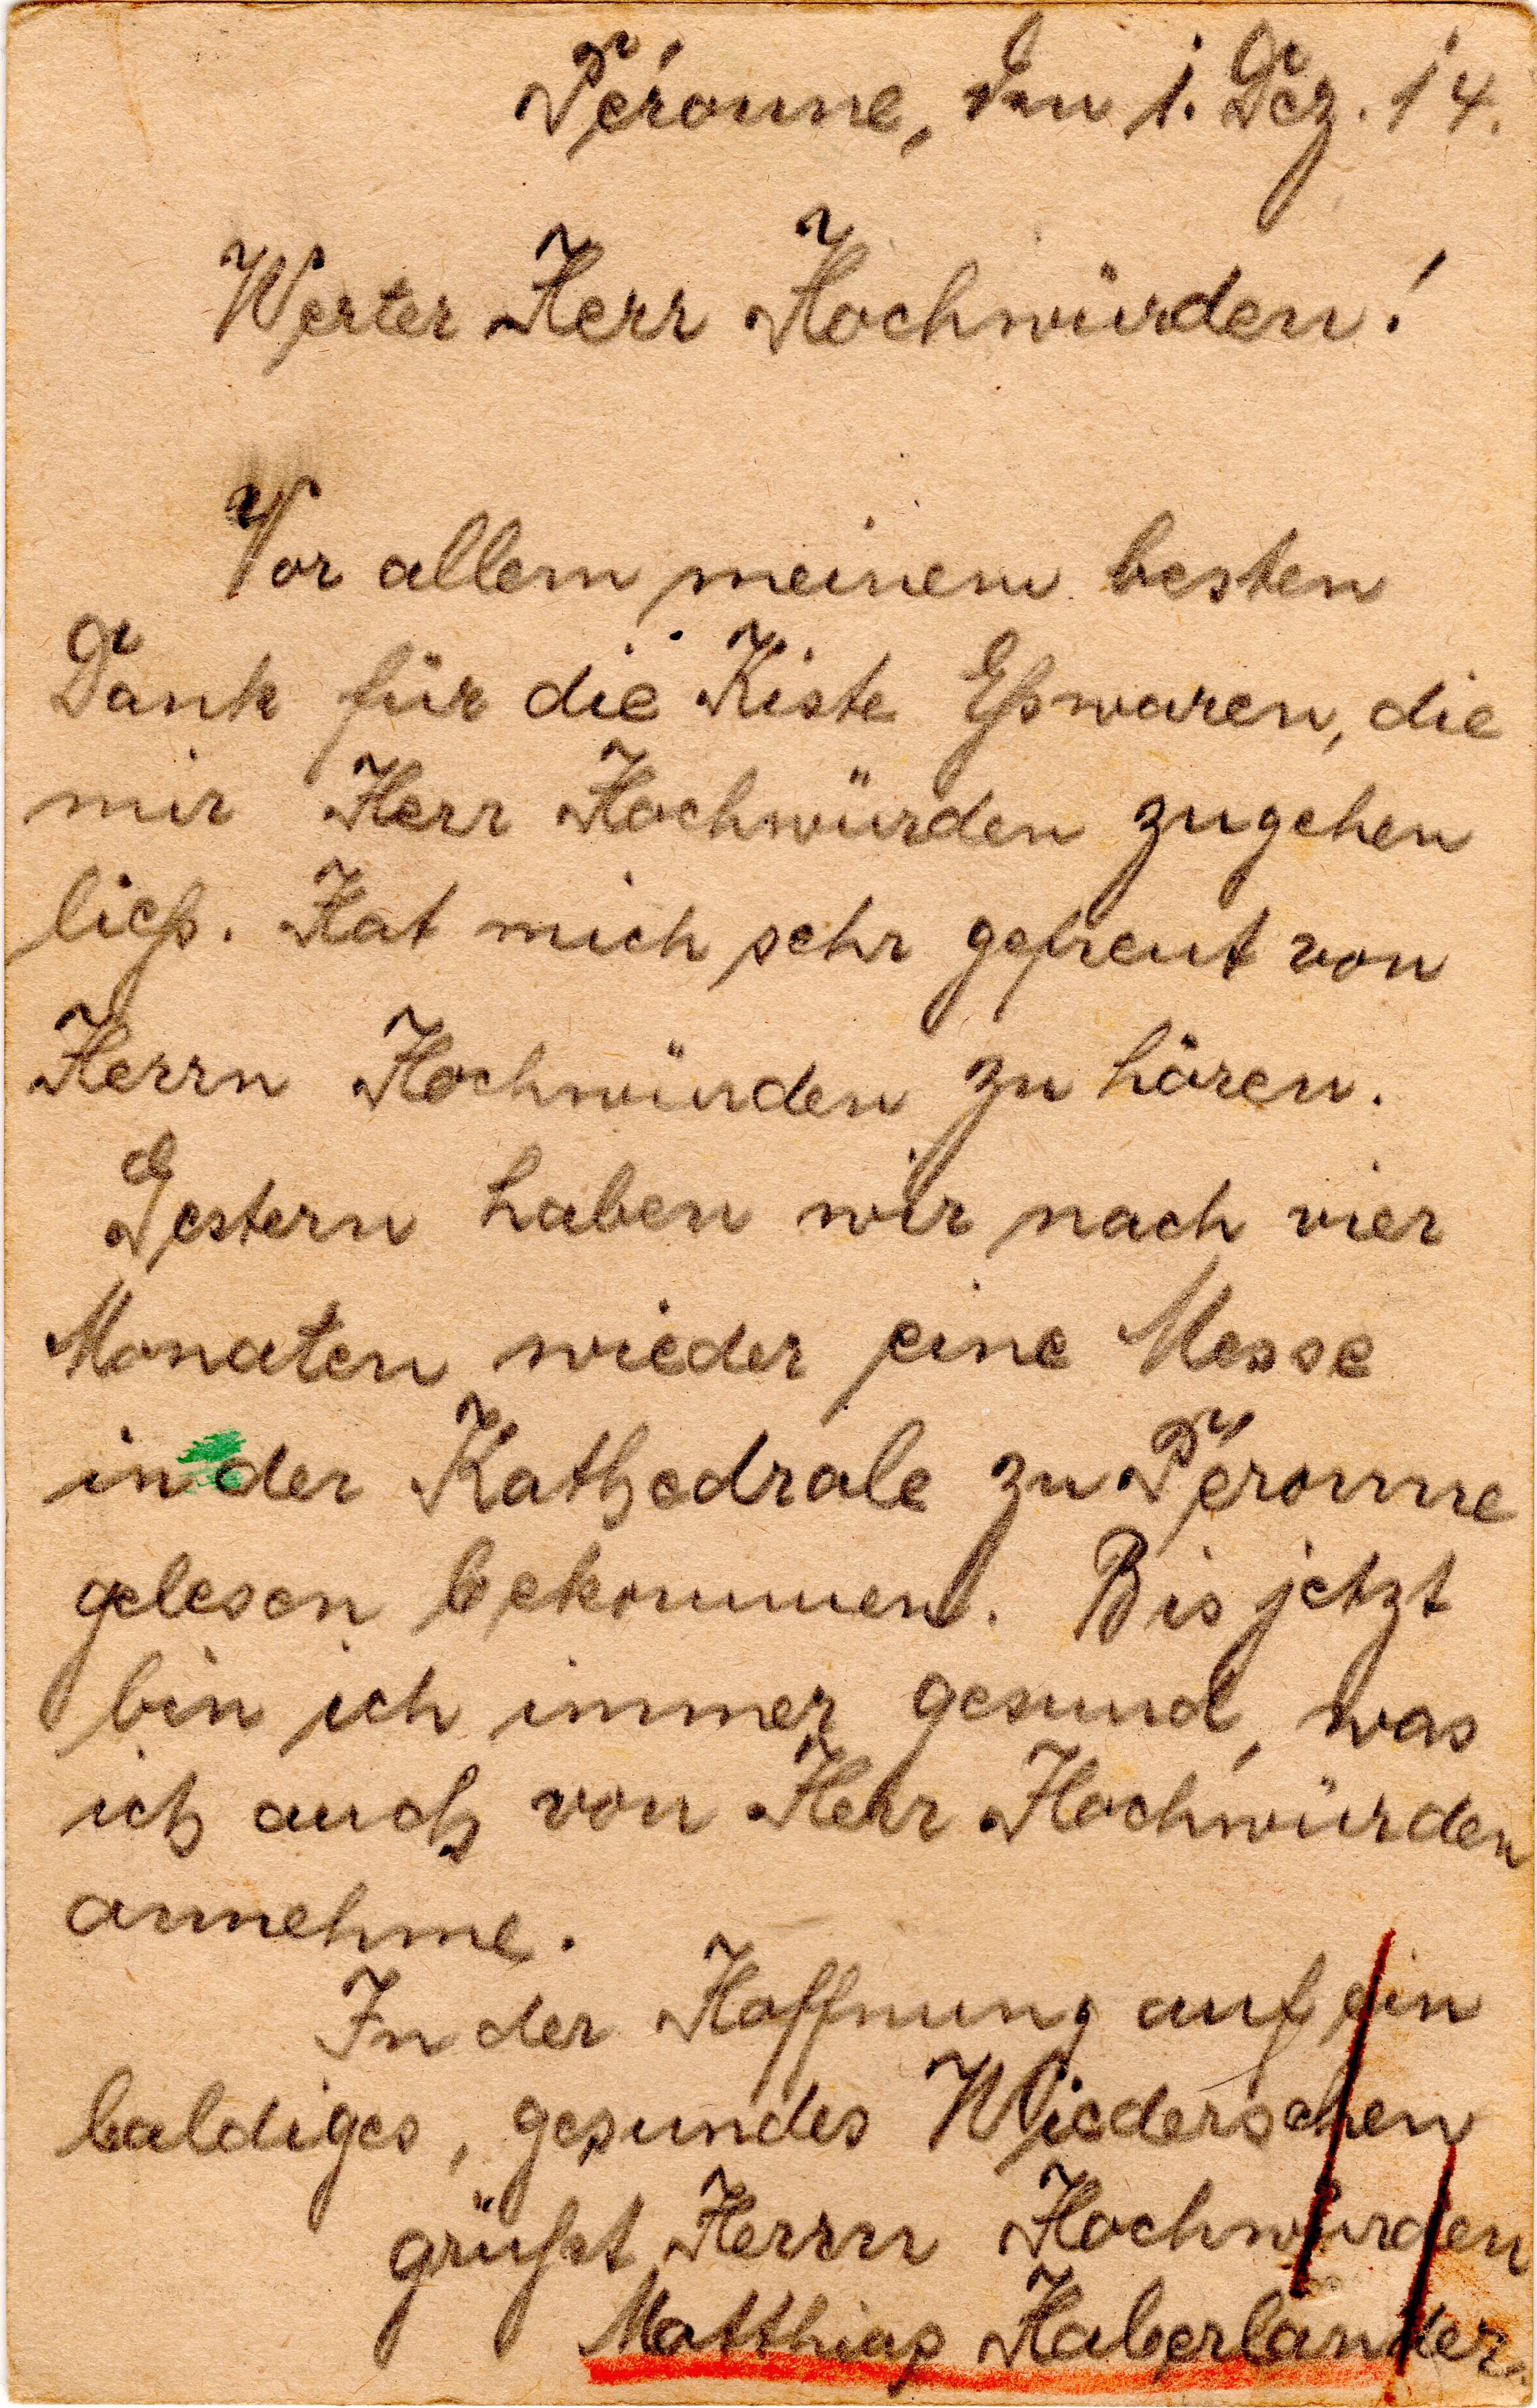 Péronne, den 1. Dez. 14.
Werter Herr Hochwürden!
Vor allem meinem besten
Dank für die Kiste Eßwaren, die
mir Herr Hochwürden zugehen
ließ. Hat mich sehr gefreut von
Herrn Hochwürden zu hören.
Gestern haben wir nach vier
Monaten wieder eine Messe
in der Kathedrale zu Péronne
gelesen bekommen. Bis jetzt
bin ich immer gesund, was
ich auch von Herr Hochwürden
annehme.
In der Hoffnung auf ein
baldiges, gesundes Wiedersehen
grüßt Herrn Hochwürden
Matthias Haberländer.